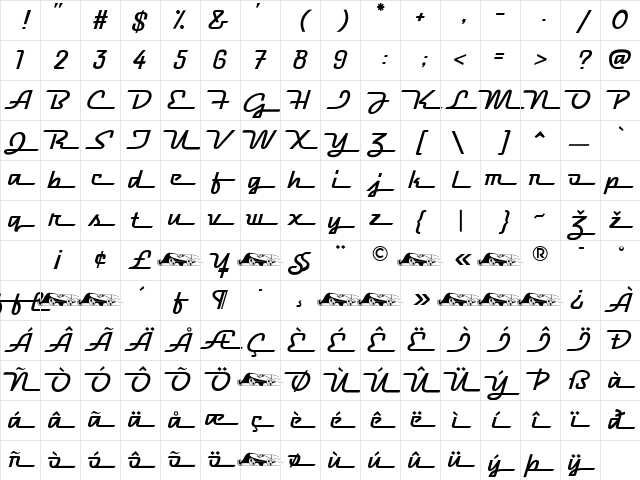 ! " # $ % & ' ( ) * + , - . / 0
1 2 3 4 5 6 7 8 9 : ; < = > ? @
A B C D E F G H I J K L M N O P
Q R S T U V W X Y Z [ \ ] ^ _ `
a b c d e f g h i j k l m n o p
q r s t u v w x y z { | } ~ Ž ž
¡ ¢ £ ¥ § ¨ © « ® ¯ °
´ ¶ · ¸ » ¿ À
Á Â Ã Ä Å Æ Ç È É Ê Ë Ì Í Î Ï Ð
Ñ Ò Ó Ô Õ Ö Ø Ù Ú Û Ü Ý Þ ß à
á â ã ä å æ ç è é ê ë ì í î ï
ñ ò ó ô õ ö ø ù ú û ü ý þ ÿ